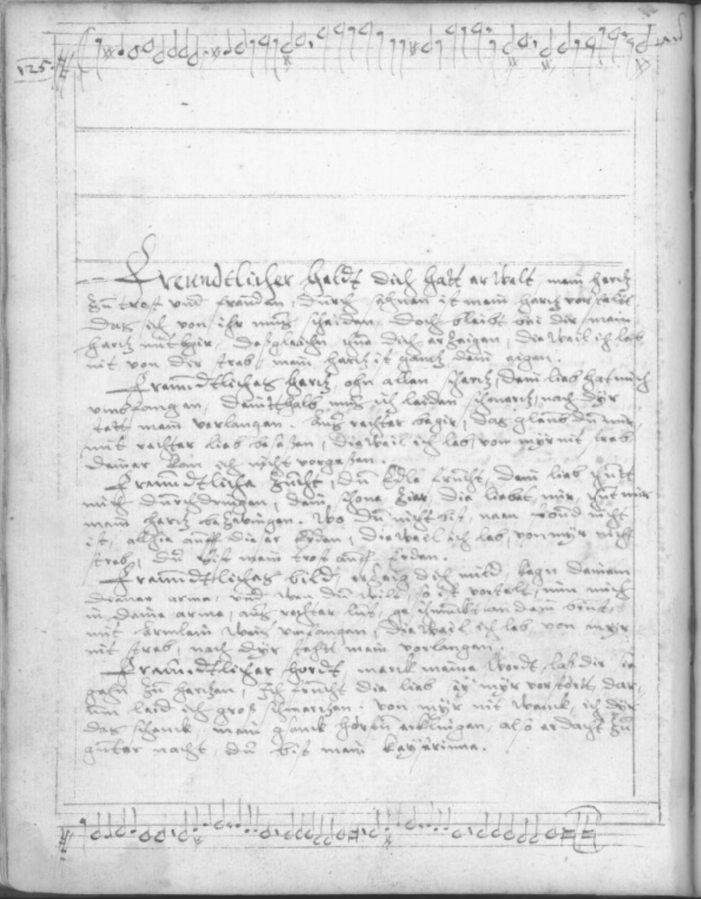 125.
Freundtlicher heldt dich hatt erwelt, mein hertz
zu trost und freuden, durch ist mein hertz
das ich von ihr mus scheiden. doch bleibt bei dir mein
hertz mit begir, desgleichen thue dich erzeigen, dieweil ich leb,
nit von dir streb, mein hertz ist gantz dein eigen.
Freundtliches hertz, ohn allen schertz, dein lieb hat mich
umbfangen, deinthalb mus ich leiden schmertz, nach dyr
stett mein verlangen. Aus rechter begir, das glaub du mir,
mit rechter lieb besessen, dieweil ich leb, von myr nit streb
deiner kan ich nicht vergessen.
Freundtliche zucht, du Edle frucht, dein lieb thutt
mich durchdringen, dein schone zier die liebet mir, thut mir
mein hertz bezwingen. Wo du nicht bist, kein freud nicht
ist, alhie auff dieser Erden, dieweil ich leb, von myr nicht
streb, du bist mein trost auff Erden.
Freundtliches bild, erzeig dich mild, kegn deinem
diener arme, und wan du wilt, so ist vorstelt, nim mich
in deine arme, aus rechter lust, an dein brust,
mit Ermlein weis umbfangen, dieweil ich leb, von myr
nit streb, nach dyr stehtt mein vorlangen.
Freundtlicher hordt, merck meine wordt, las dir sie
gehn zu hertzen, die lieb myr vorstortt, dar-
um leid ich gros schmertzen. von myr nit wenck, ich dyr
das schenck mein gsanck horen erklingen, also erdacht zu
guter nacht, du bist mein keyserinne.